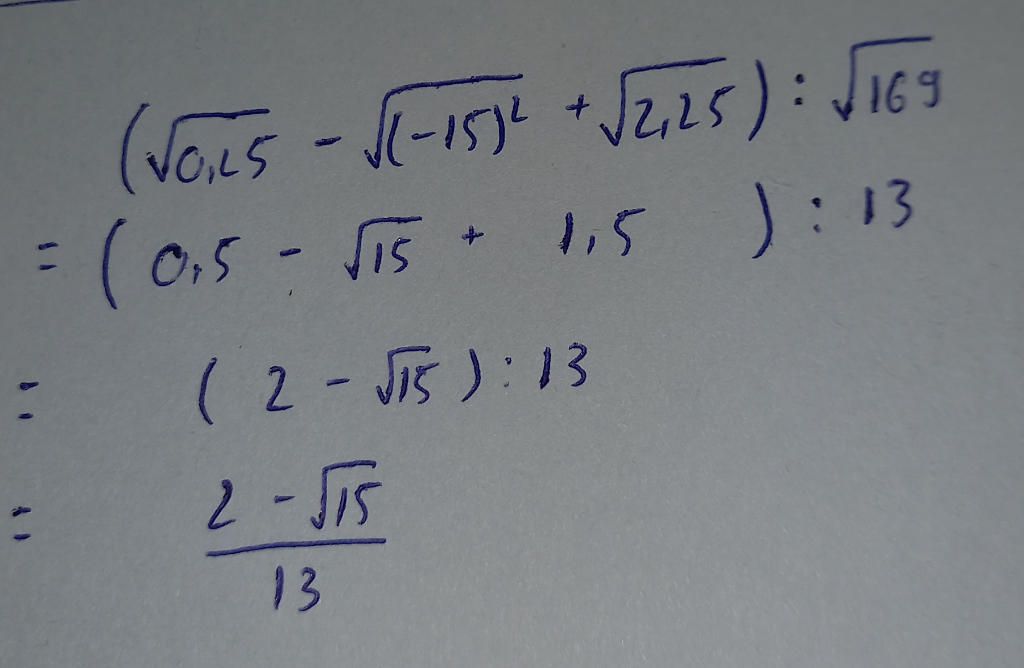 (√0,25 - √(-15)² + √2,25) : √169
= (0,5 - √15 + 1,5) : 13
= (2 - √15) : 13
= (2 - √15)/13